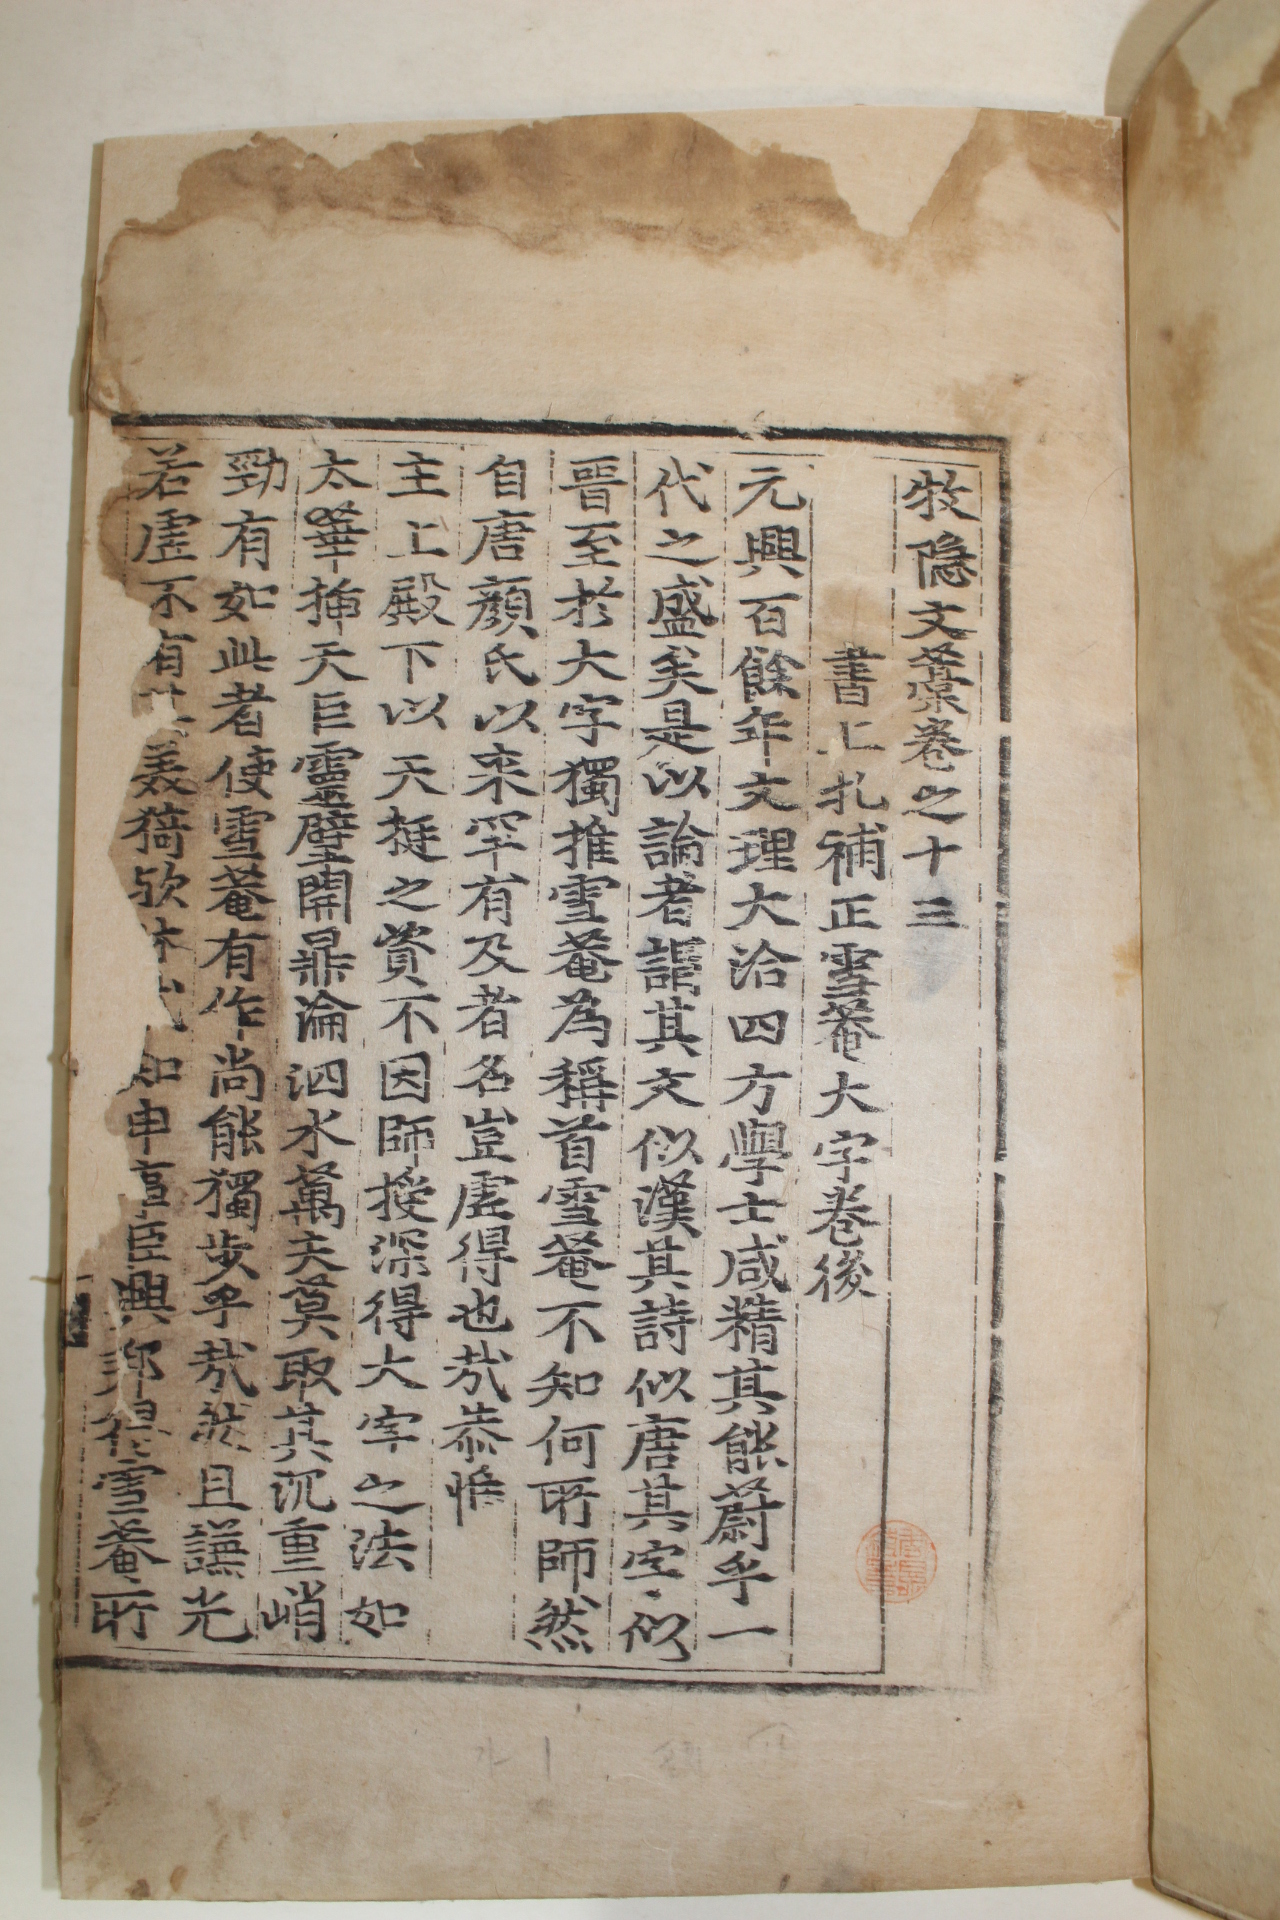 牧隱文藁卷之十三
書上札補正雪菴大字卷後
元興百餘年文理大洽四方學士咸精其能蔚乎一
代之盛矣是以論者謂其文似漢其詩似唐其字似
晉至於大字獨推雪菴爲稱首雪菴不知何所師然
自唐顔氏以來罕有及者名豈虛得也㦲恭惟
主上殿下以天挺之資不因師授深得大字之法如
太華揷天巨靈擘開鼎淪泗水萬夫莫取其沉重峭
勁有如此者使雪菴有作尚能獨步乎㦲然且謙光
若虛不有其美猗歟 申 臣興邦得雪菴所